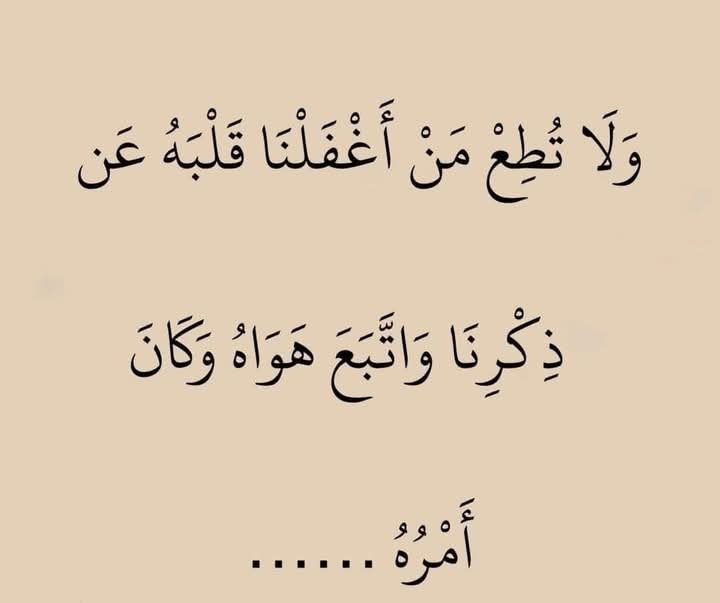 وَلَا تُطِعْ مَنْ أَغْفَلْنَا قَلْبَهُ عَن
ذِكْرِنَا وَاتَّبَعَ هَوَاهُ وَكَانَ
أَمْرُهُ ......